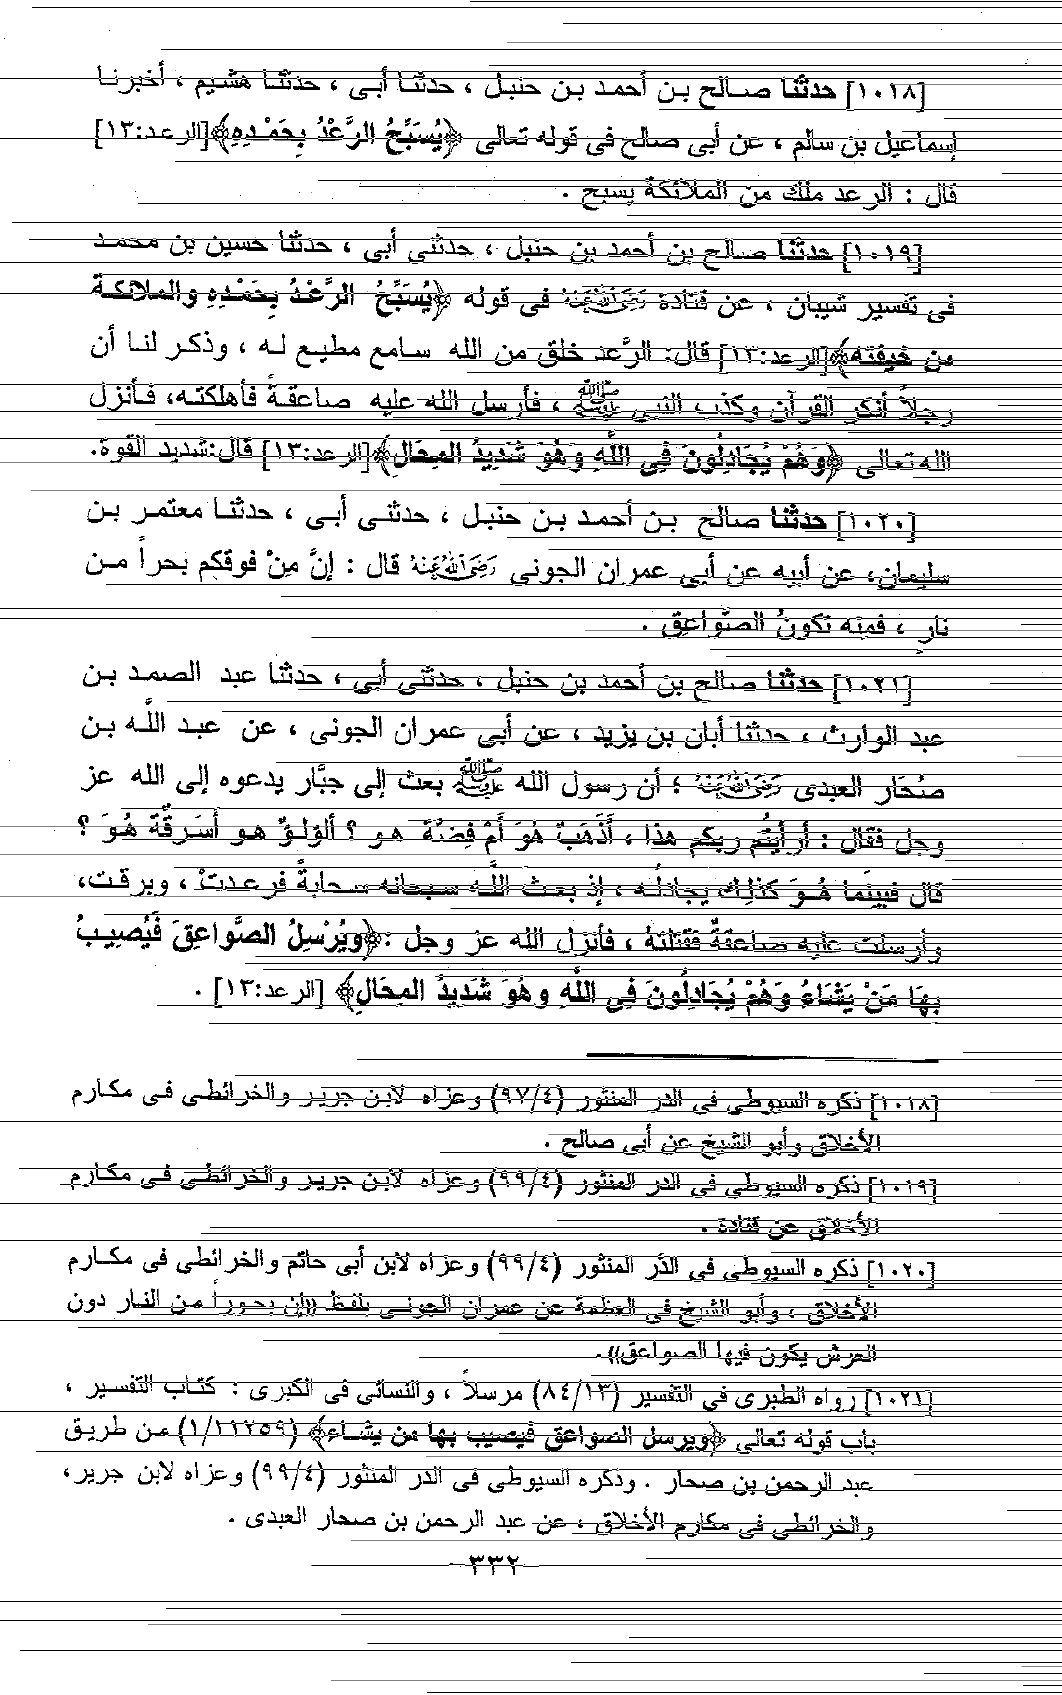 [١٠١٨] حدثنا صالح بن أحمد بن حنبل ، حدثنا أبى ، حدثنا هشيم ، أخبرنا
إسماعيل بن سالم ، عن أبى صالح فى قوله تعالى ﴿يُسَبِّحُ الرَّعْدُ بِحَمْدِهِ﴾[الرعد:١٣]
قال : الرعد ملك من الملائكة يسبح .
[١٠١٩] حدثنا صالح بن أحمد بن حنبل ، حدثنى أبى ، حدثنا حسين بن محمد
فى تفسير شيبان ، عن قتادة رَضِىَ اللهُ عَنْهُ فى قوله ﴿يُسَبِّحُ الرَّعْدُ بِحَمْدِهِ والملائكة
من خيفته﴾[الرعد:١٣] قال: الرَّعد خلق من الله سامع مطيع له ، وذكر لنا أن
رجلاً أنكر القرآن وكذب النبى ﷺ ، فأرسل الله عليه صاعقةً فأهلكته، فأنزل
الله تعالى ﴿وَهُمْ يُجَادِلُونَ فِى اللَّهِ وَهُوَ شَدِيدُ المِحَالِ﴾[الرعد:١٣] قال:شديد القوة.
[١٠٢٠] حدثنا صالح بن أحمد بن حنبل ، حدثنى أبى ، حدثنا معتمر بن
سليمان، عن أبيه عن أبى عمران الجونى رَضِىَ اللهُ عَنْهُ قال : إنَّ مِنْ فوقكم بحراً من
نار ، فمنه تكونُ الصَّواعق .
[١٠٢١] حدثنا صالح بن أحمد بن حنبل ، حدثنى أبى ، حدثنا عبد الصمد بن
عبد الوارث ، حدثنا أبان بن يزيد ، عن أبى عمران الجونى ، عن عبد اللَّه بن
صُحَار العبدى رَضِىَ اللهُ عَنْهُ ؛ أن رسول الله ﷺ بعث إلى جبَّار يدعوه إلى الله عز
وجل فقال : أرأيتُم ربكم هذا ، أَذَهَبٌ هُوَ أَمْ فِضَّةٌ هو ؟ ألؤلؤٌ هو أسَرقَةٌ هُوَ ؟
قال فبينَما هُوَ كذلِكَ يجادلُه ، إذ بعث اللَّه سبحانه سحابةً فرعدتْ ، وبرقت،
وأرسلت عليه صاعقةٌ فقتلتهُ ، فأنزل الله عز وجل :﴿ويُرْسِلُ الصَّواعِقَ فَيُصِيبُ
بِهَا مَنْ يَشَاءُ وَهُمْ يُجَادِلُونَ فِى اللَّهِ وهُوَ شَدِيدُ المِحَالِ﴾ [الرعد:١٣] .
[١٠١٨] ذكره السيوطى فى الدر المنثور (٩٧/٤) وعزاه لابن جرير والخرائطى فى مكارم
الأخلاق وأبو الشيخ عن أبى صالح .
[١٠١٩] ذكره السيوطى فى الدر المنثور (٩٩/٤) وعزاه لابن جرير والخرائطى فى مكارم
الأخلاق عن قتادة .
[١٠٢٠] ذكره السيوطى فى الدُّر المنثور (٩٩/٤) وعزاه لابن أبى حاتم والخرائطى فى مكارم
الأخلاق ، وأبو الشيخ فى العظمة عن عمران الجونى بلفظ ((إن بحوراً من النار دون
العرش يكون فيها الصواعق)) .
[١٠٢١] رواه الطبرى فى التفسير (٨٤/١٣) مرسلاً ، والنسائى فى الكبرى : كتاب التفسير ،
باب قوله تعالى ﴿ويرسل الصواعق فيصيب بها من يشاء﴾ (١/١١٢٥٩) من طريق
عبد الرحمن بن صحار . وذكره السيوطى فى الدر المنثور (٩٩/٤) وعزاه لابن جرير،
والخرائطى فى مكارم الأخلاق ، عن عبد الرحمن بن صحار العبدى .
-٣٣٢-